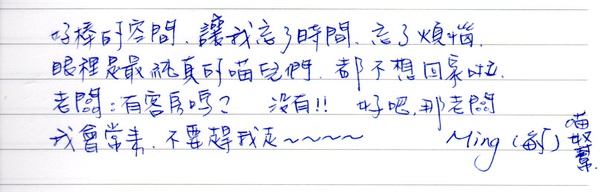 好棒的空間，讓我忘了時間，忘了煩惱，
眼裡是最純真的喵兒們，都不想回家啦。
老闆：有客房嗎？ 沒有!! 好吧，那老闆
我會常來，不要趕我走~~~~ Ming
喵奴幫